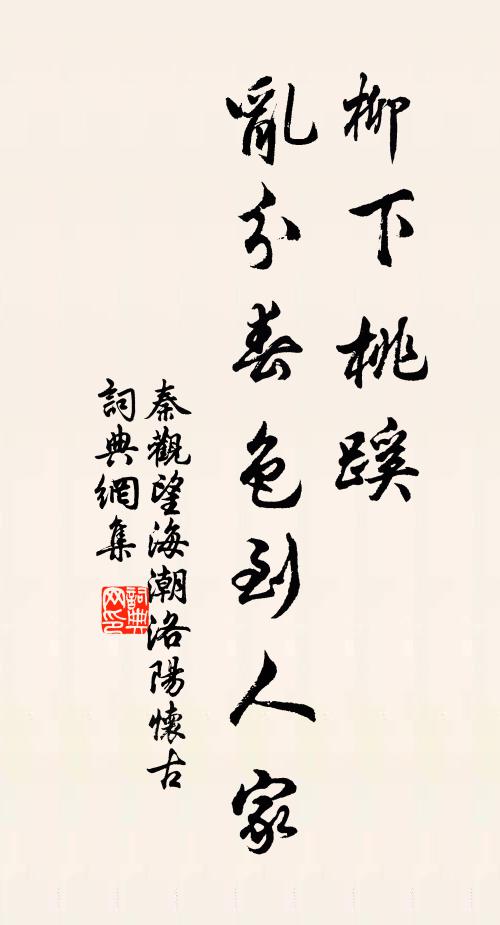 柳下桃蹊
亂分春色到人家
秦觀望海潮洛陽懷古
詞典網集
詞典
网印